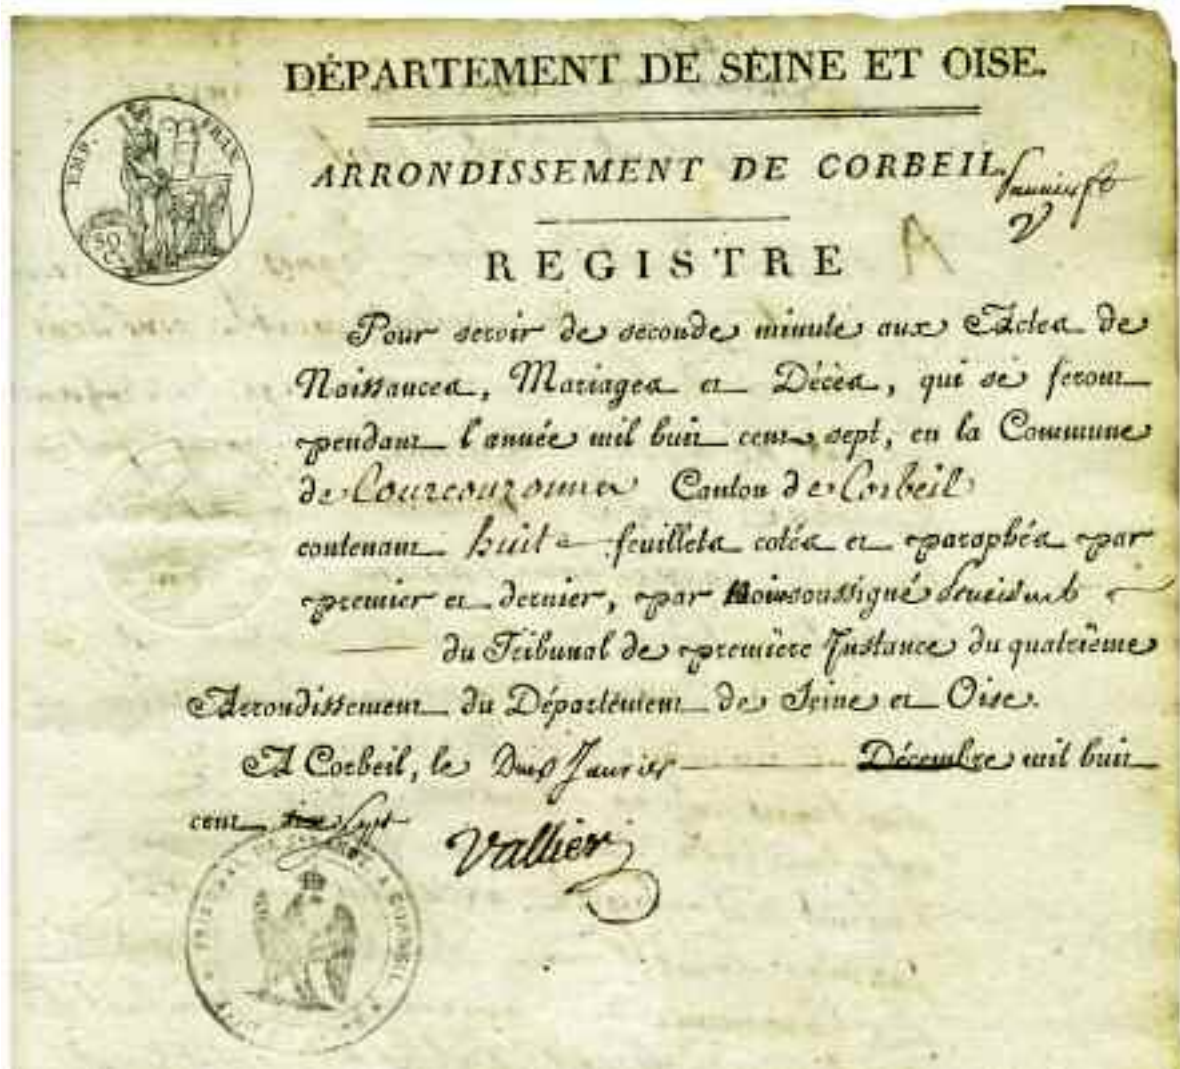 DÉPARTEMENT DE SEINE ET OISE.
EMP. FRAN.
50 C.
ARRONDISSEMENT DE CORBEIL.
REGISTRE
A
Pour servir de seconde minute aux Actes de
Naissances, Mariages et Décès, qui se feront
pendant l'année mil huit cent sept, en la Commune
de Courcouronne Canton de Corbeil
contenant huit feuillets cotés et paraphés par
premier et dernier, par Nous soussigné
du Tribunal de première Instance du quatrième
Arrondissement du Département de Seine et Oise.
A Corbeil, le Deux Janvier Décembre mil huit
cent sept
Vallier